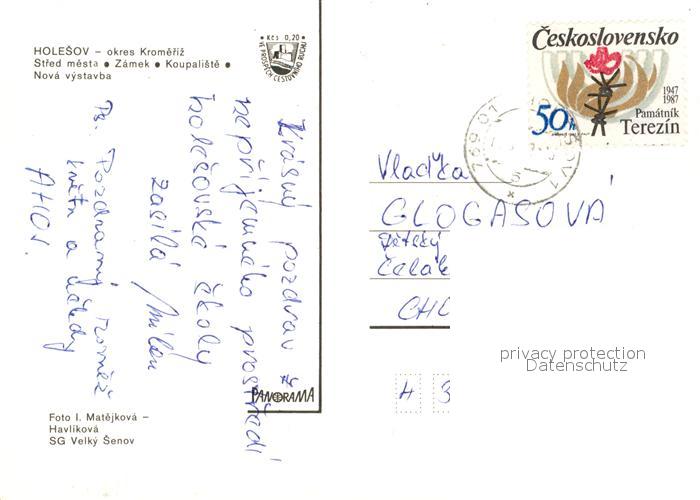 HOLEŠOV – okres Kroměříž
Střed města • Zámek • Koupaliště •
Nová výstavba
• Kčs 0,20 •
VE PROSPĚCH CESTOVNÍHO RUCHU
Krásný pozdrav z
nepříjemného prostředí
holešovské školy
zasílá Milan
Ps. Pozdravuj rovněž
a
AHOJ.
PANORAMA
Foto I. Matějková –
Havlíková
SG Velký Šenov
Československo
1947
1987
Památník
Terezín
50h
Vlaďka
GLOGASOVÁ
Dětský
Čelak
CHC
4 3
privacy protection
Datenschutz